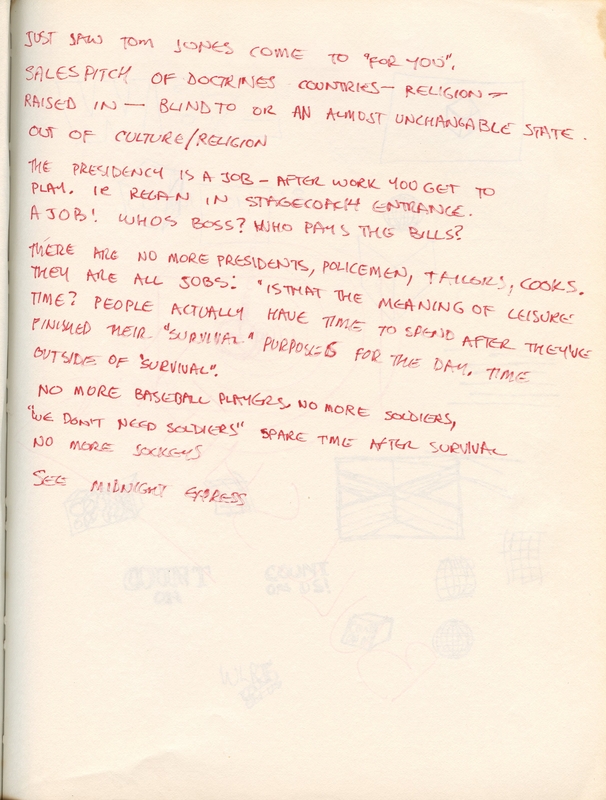 JUST SAW TOM JONES COME TO "FOR YOU".
SALES PITCH OF DOCTRINES COUNTRIES — RELIGION —
RAISED IN — BLIND TO OR AN ALMOST UNCHANGABLE STATE.
OUT OF CULTURE/RELIGION
THE PRESIDENCY IS A JOB — AFTER WORK YOU GET TO
PLAY. IE REGAN IN STAGECOACH ENTRANCE.
A JOB! WHOS BOSS? WHO PAYS THE BILLS?
THERE ARE NO MORE PRESIDENTS, POLICEMEN, TAILERS, COOKS.
THEY ARE ALL JOBS: "IS THAT THE MEANING OF LEISURE
TIME? PEOPLE ACTUALLY HAVE TIME TO SPEND AFTER THEY'VE
FINISHED THEIR "SURVIVAL" PURPOSES FOR THE DAY. TIME
OUTSIDE OF "SURVIVAL".
NO MORE BASEBALL PLAYERS, NO MORE SOLDIERS,
"WE DON'T NEED SOLDIERS" SPARE TIME AFTER SURVIVAL
NO MORE JOCKEYS
SEE MIDNIGHT EXPRESS